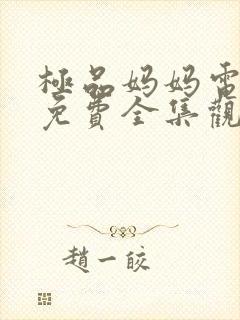 極品妈妈電
免費全集觀
趙一皎